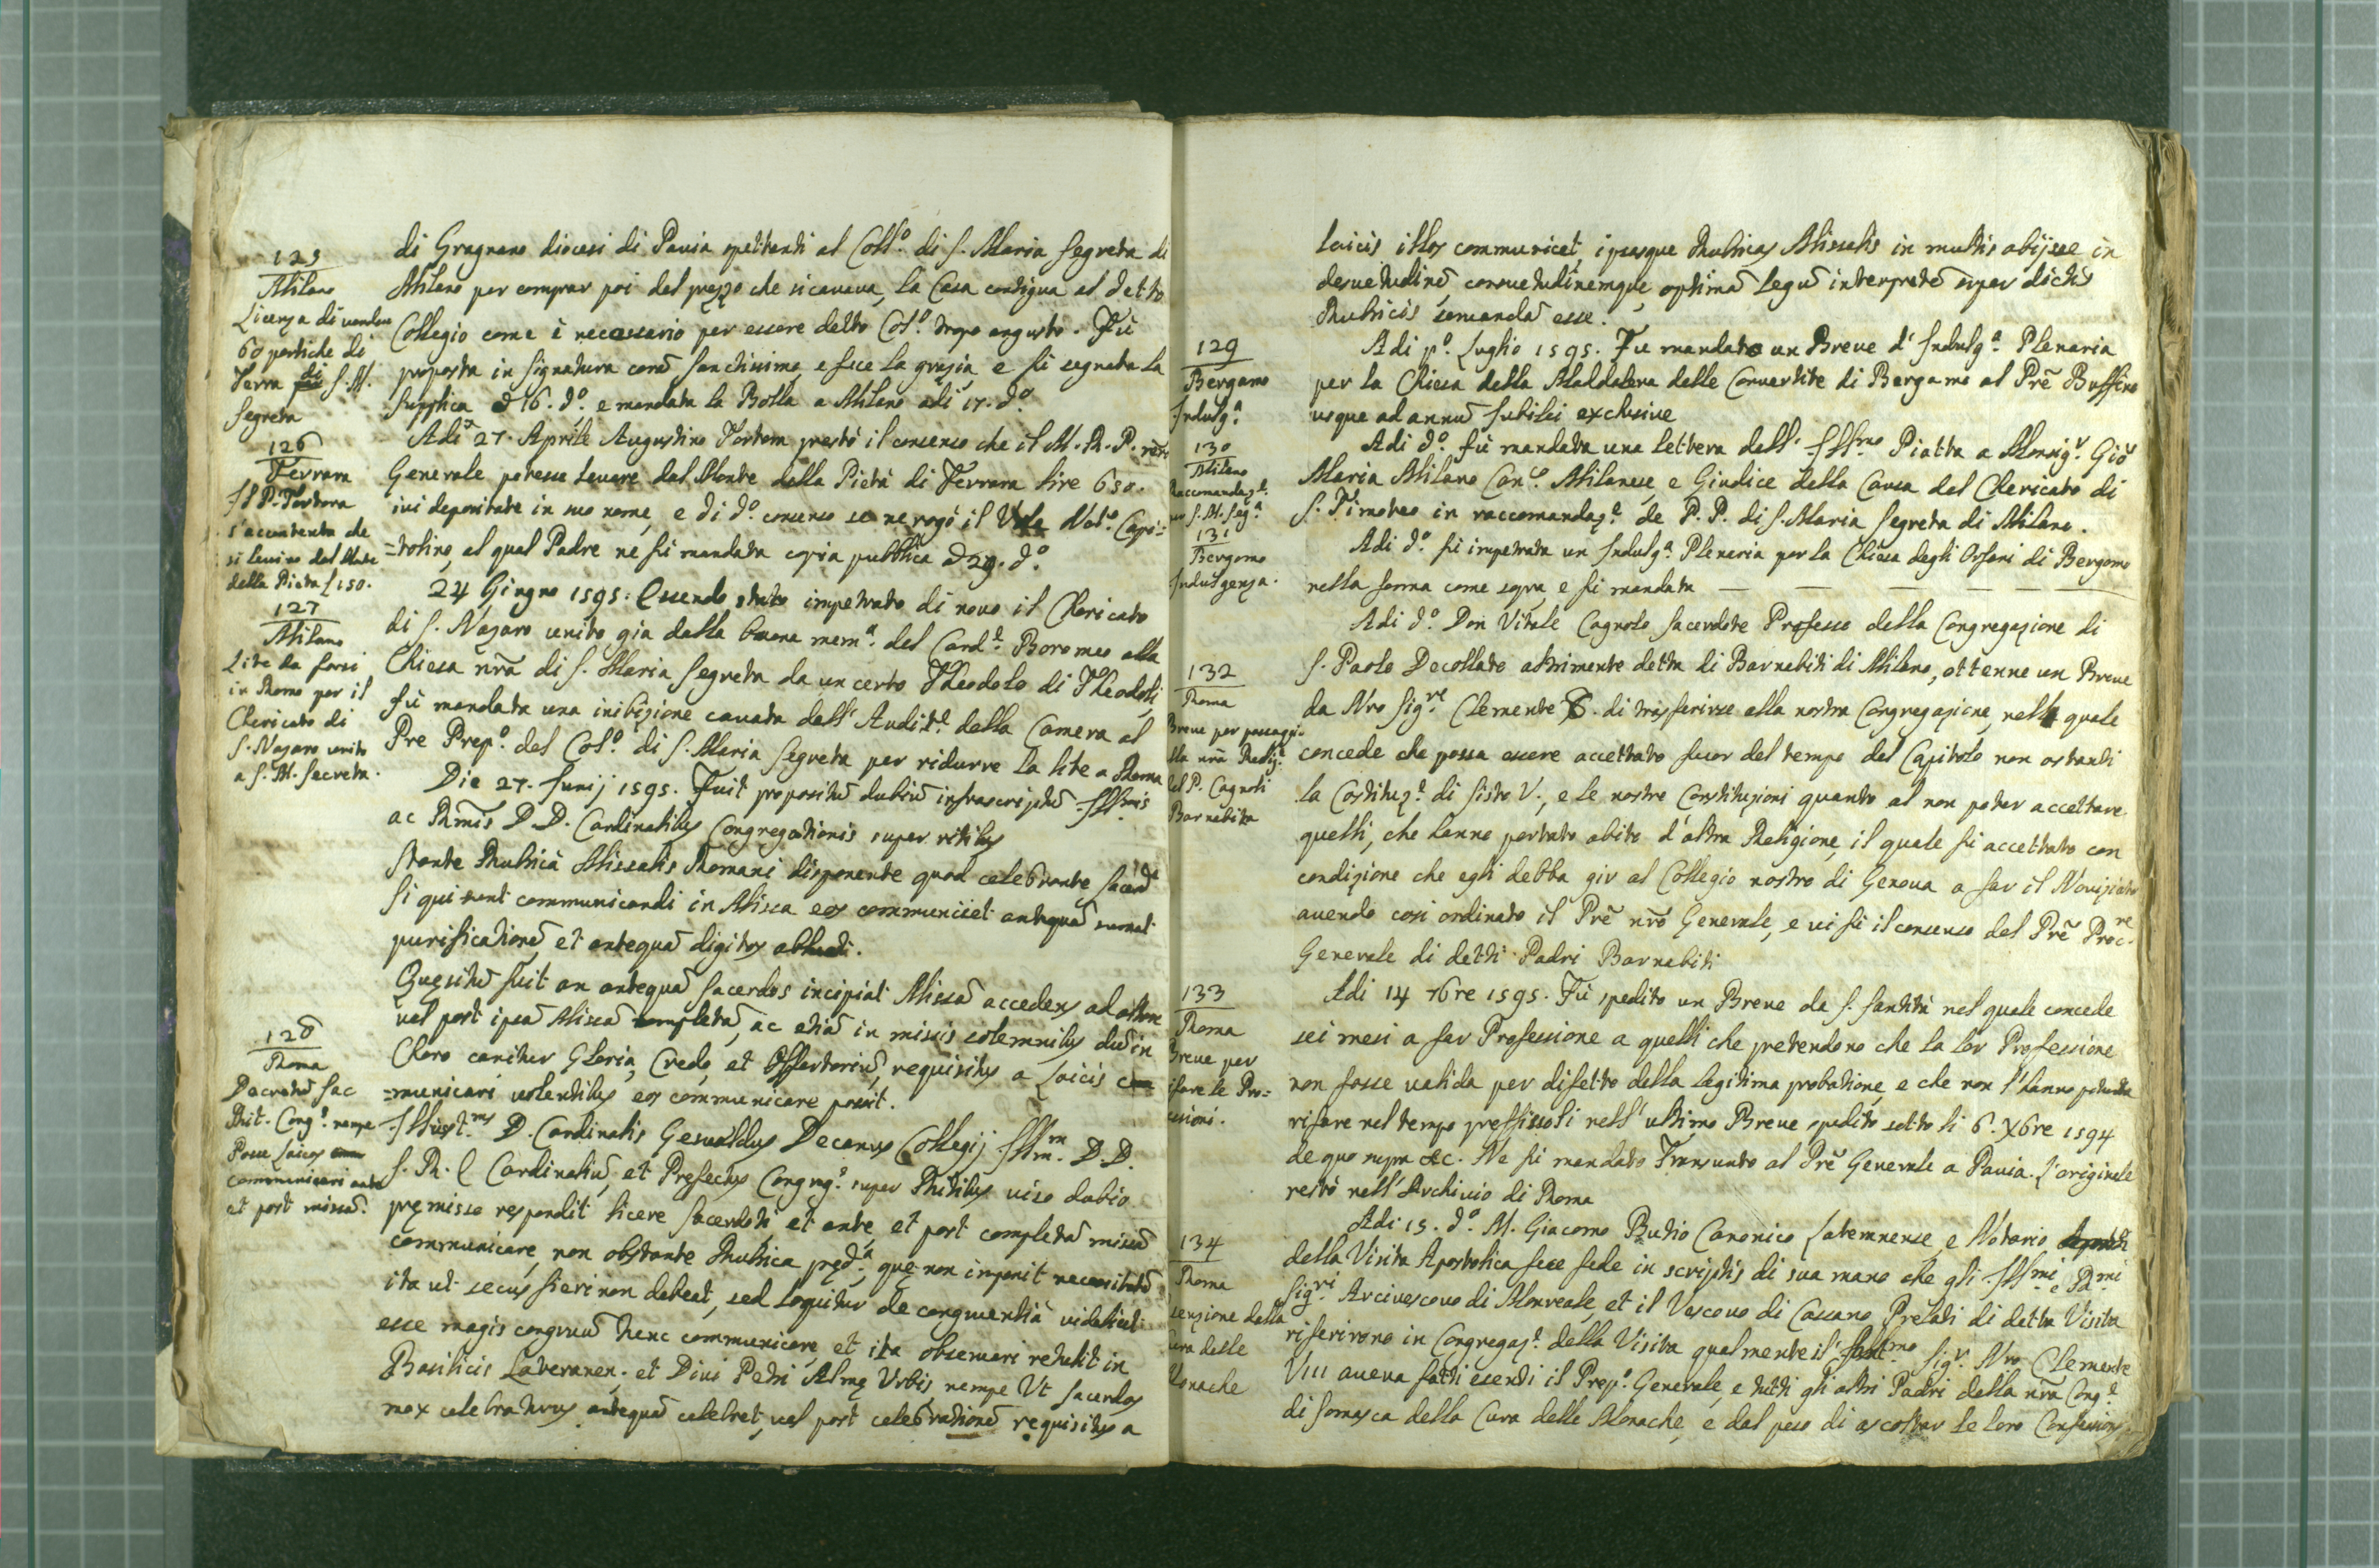 di Gragnano diocesi di Pavia spettanti al Coll.º di S. Maria Segreta di
Milano per comprar poi del prezzo che si cavava, la Casa contigua al detto
Collegio come è necessario per essere detto Col.º tropo angusto. Fù
proposta in Signatura corã Sanctissimo, e fece la grazia, e fù segnata la
Supplica a 16. d.º e mandata la Bolla a Milano adi 17. d.º
125
Milano
Licenza di vender
60 pertiche di
Terra di S. M.
Segreta
Adi 27. Aprile Augustino Tortora prestò il consenso che il M. R. P. nro
Generale potesse levare dal Monte della Pietà di Ferrara lire 650.
ivi depositate in suo nome, e di d.º consenso se ne rogò il Not.º Capi=
=tolino, al qual Padre ne fù mandata copia pubblica a 29. d.º
126
Ferrara
Il P. Tortora
s'accontenta che
si levino dal Monte
della Pietà £ 150.
24 Giugno 1595. Essendo stato impetrato di novo il Chericato
di S. Nazaro unito gia dalla buona mem.ª del Card.e Boromeo alla
Chiesa nr̃a di S. Maria Segreta da un certo Theodolo di Theodoli,
fù mandata una inibizione cavata dall' Audit.e della Camera al
Pre Prep.º del Col.º di S. Maria Segreta per ridurre la lite a Roma
127
Milano
Lite da farsi
in Roma per il
Chericato di
S. Nazaro unito
a S. M. Secreta.
Die 27. Junij 1595. Fuit propositũ dubiũ infrascriptũ Illmis
ac Rmis D. D. Cardinalibus Congregationis super ritibus
Stante Rubrica Missalis Romani disponente quod celebrante Sacerd.e
si qui sunt communicandi in Missa eos communicet antequã sumat
purificationẽ, et antequã digitos abluat.
Quesitũ fuit an antequã Sacerdos incipiat Missã accedens ad altare
vel post ipsã Missã completã, ac etiã in missis solemnibus dũ in
Choro canitur Gloria, Credo, et Offertoriũ, requisitus a Laicis com
=municari volentibus eos communicare possit.
Illust.mus D. Cardinalis Gesualdus Decanus Collegij Illm. D. D.
S. R. E Cardinaliũ, et Prefectus Congreg.s super Ritibus viso dubio
pręmisso respondit licere Sacerdoti, et ante, et post completã missã
communicare, non obstante Rubrica pręd.a, quę non imponit necessitatẽ
ita ut secus fieri non debeat, sed loquitur de congruentia videlicet
esse magis congruũ tunc communicare, et ita observari retulit in
Basilicis Lateranen. et Divi Petri Almę Urbis, nempe Ut sacerdos
mox celebraturus antequã celebret, vel post celebrationẽ requisitus a
128
Roma
Decretũ Sac
Rit. Cong.s nempe
Posse Laicos
communicari ante
et post missã.
laicis illos communicet, ipsasque Rubricas Missalis in multis abijsse in
desuetudinẽ, consuetudinemque, optimã legũ interpretẽ super dictis
Rubricis servandã esse.
Adi p.º Luglio 1595. Fu mandato un Breve d' Indulg.ª Plenaria
per la Chiesa della Maddalena delle Convertite di Bergamo al Prẽ Boffino
usque ad annũ Jubilei exclusive
129
Bergamo
Indulg.ª
Adi d.º fù mandata una lettera dell' Ill.mo Piatta a Monsig.r Gio
Maria Milano Can.co Milanese, e Giudice della Causa del Chericato di
S. Timoteo in raccomandaz.e de P. P. di S. Maria Segreta di Milano.
130
Milano
Raccomandaz.e
S. M. Seg.ª
Adi d.º fù impetrata un Indulg.ª Plenaria per la Chiesa degli Orfani di Bergamo
nella forma come sopra, e fù mandata — — — — —
131
Bergomo
Indulgenza.
Adi d.º Don Vitale Cagnolo Sacerdote Professo della Congregazione di
S. Paolo Decollato altrimente detta di Barnabiti di Milano, ottenne un Breve
da Nro Sig.re Clemente 8. di trasferirse alla nostra Congregazione, nella quale
concede che possa essere accettato fuor del tempo del Capitolo non ostanti
la Costituz.e di Sisto V., e le nostre Constituzioni quanto al non poter accettare
quelli, che hanno portato abito d'altra Religione, il quale fù accettato con
condizione che egli debba gir al Collegio nostro di Genova a far il Noviziato
avendo così ordinato il Prẽ nrõ Generale, e vi fù il consenso del Prẽ Proc.re
Generale di detti Padri Barnabiti
132
Roma
Breve per passaggio
alla nrã Relig.e
del P. Cagnoli
Barnabita
Adi 14 76re 1595. Fù spedito un Breve da S. Santità nel quale concede
sei mesi a far Professione a quelli che pretendono che la lor Professione
non fosse valida per difetto della legitima probatione, e che non l'hanno potuta
rifare nel tempo preffissoli nell' ultimo Breve spedito sotto li 6. X6re 1594
de quo supra &c. Ne fù mandato Transunto al Prẽ Generale a Pavia. L'originale
restò nell' Archivio di Roma
133
Roma
Breve per
rifare le Pro=
fessioni.
Adi 15. d.º M. Giacomo Butio Canonico Lateranense, e Notario
della Visita Apostolica fece fede in scriptis di sua mano che gli Ill.mi e R.mi
Sig.ri Arcivescovo di Monreale, et il Vescovo di Cassano Prelati di detta Visita
riferirono in Congregaz.e della Visita qualmente il Sant.mo Sig.r Nro Clemente
VIII aveva fatti esenti il Prep.º Generale, e tutti gli altri Padri della nrã Cong.e
di Somasca della Cura delle Monache, e dal peso di ascoltar le loro Confessioni
134
Roma
esenzione della
Cura delle
Monache